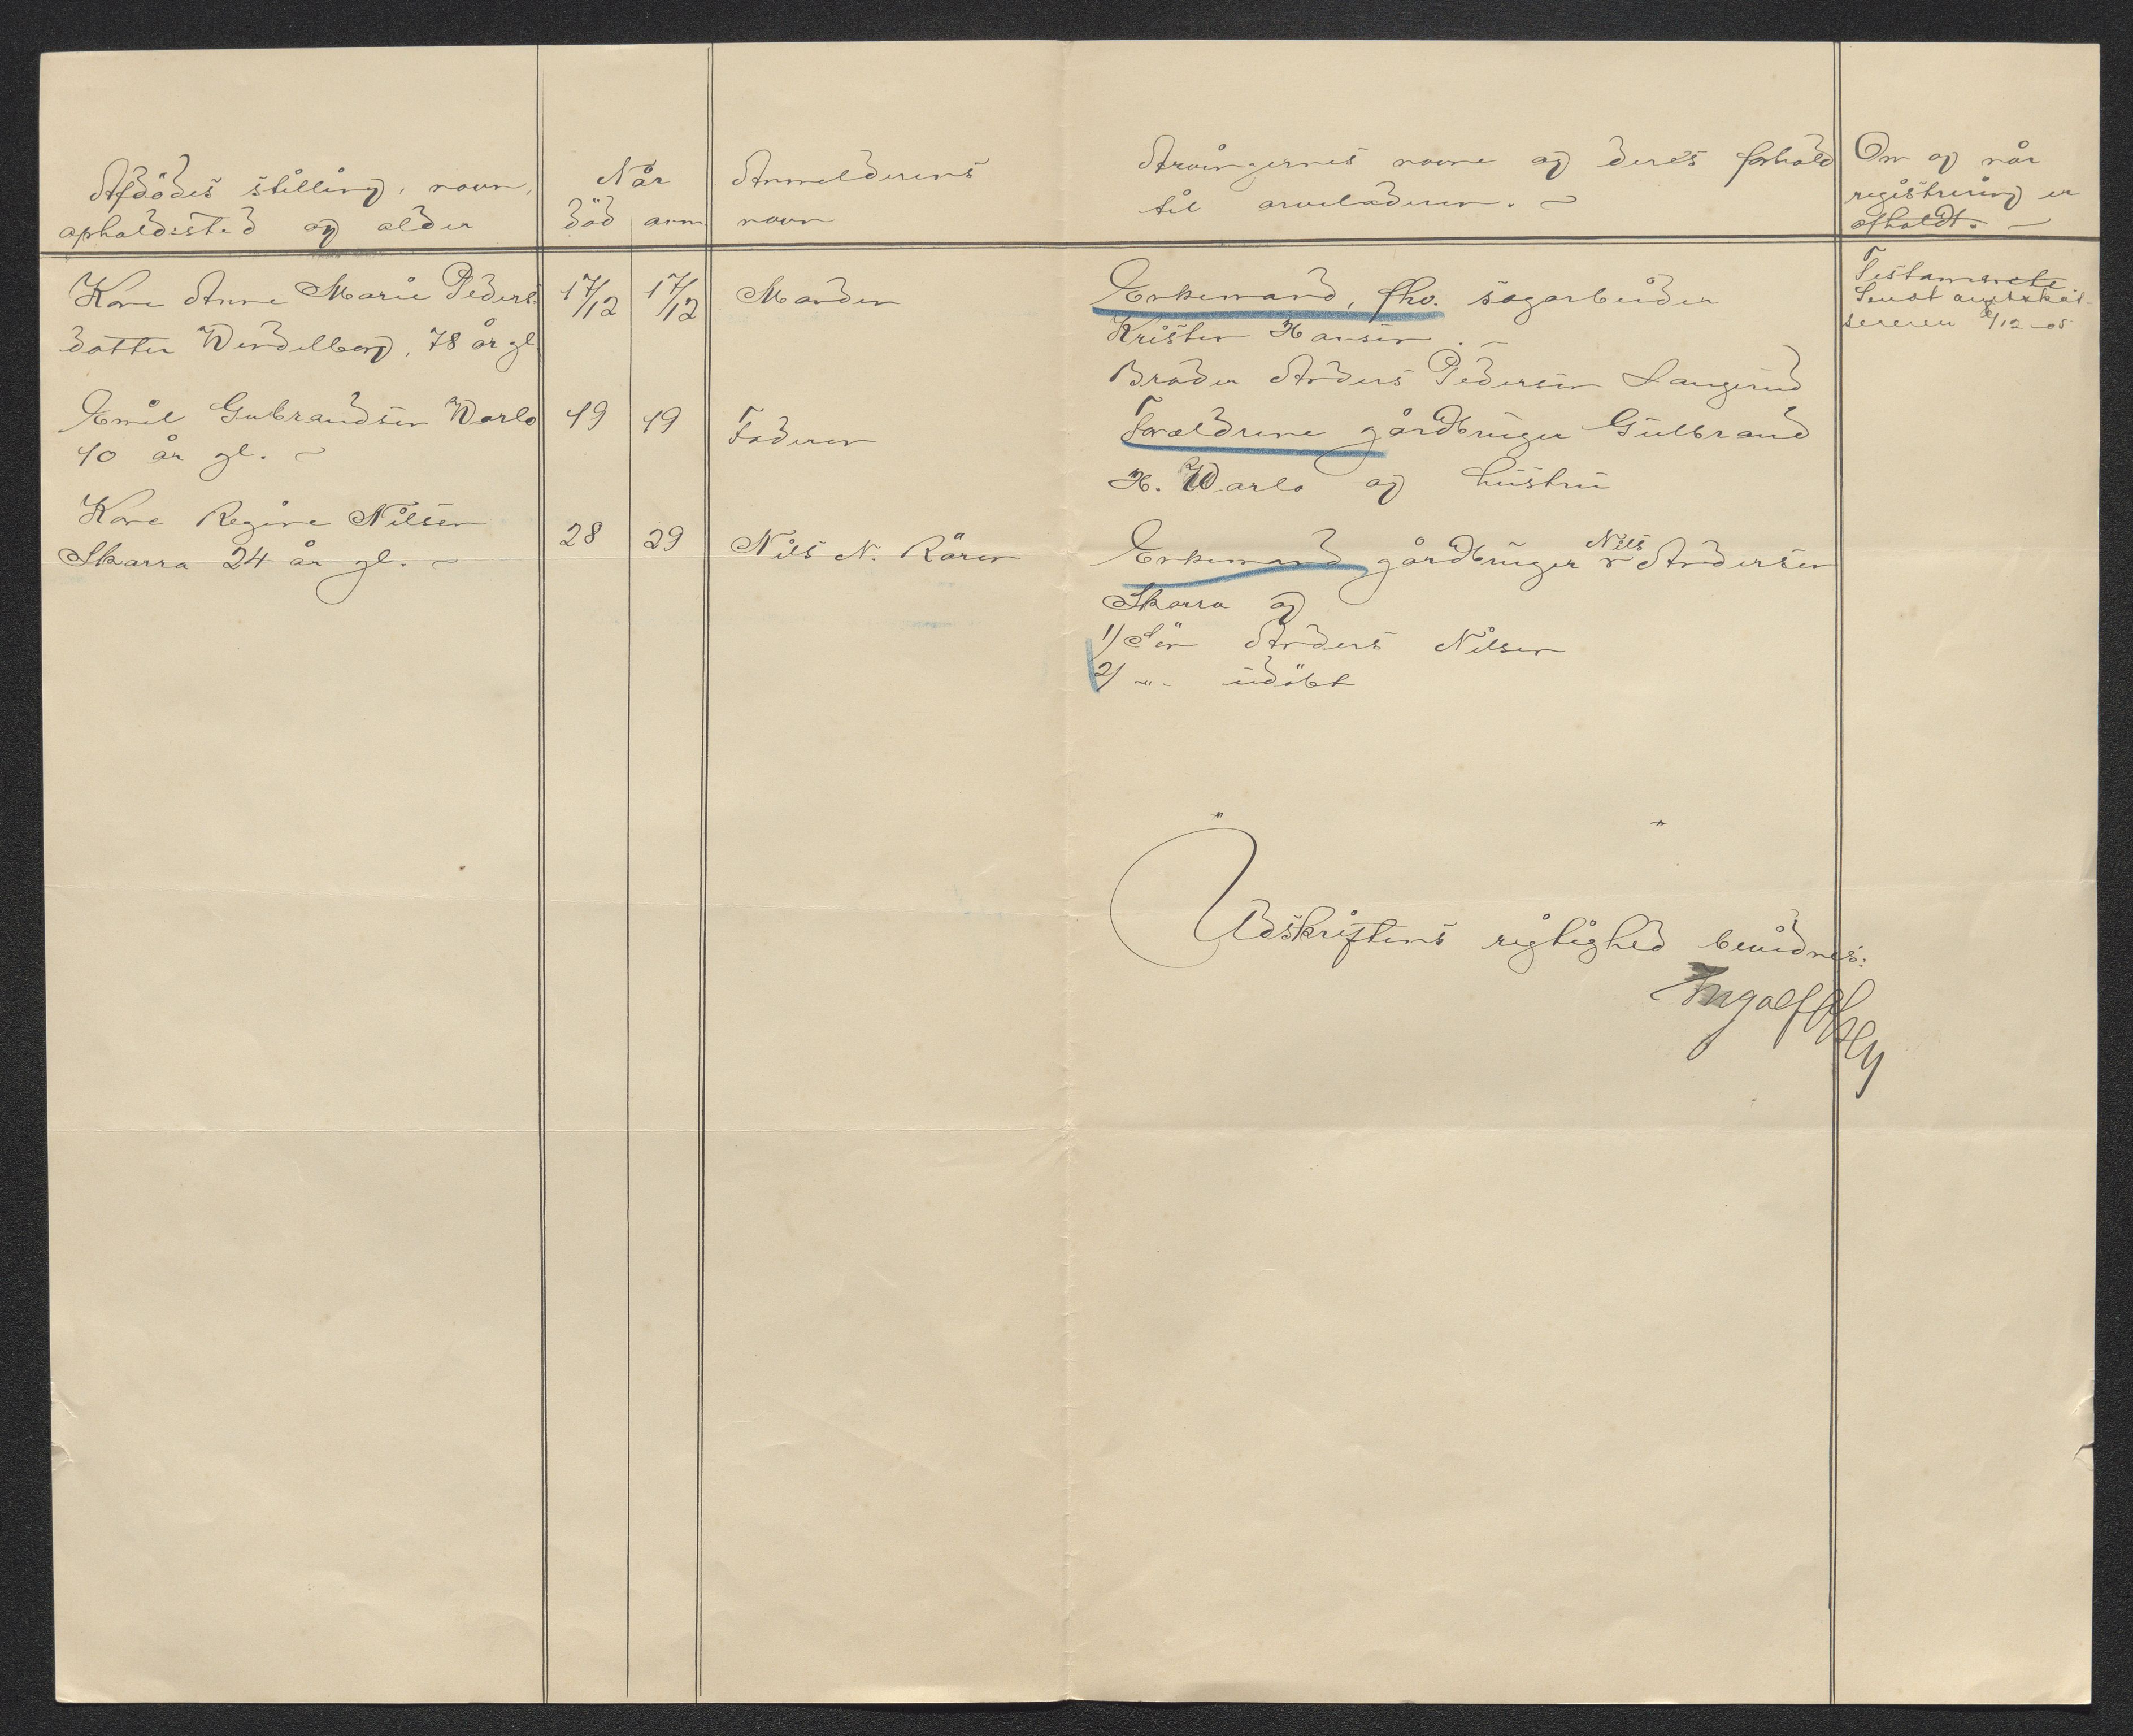 Afdödes stilling, navn,
opholdssted og alder
Når
död anm
Anmelderens
navn
Arvingernes navne og deres forhold
til arveladeren. –
Om og når
registrering er
afholdt. –
Kone Anne Marie Peders
datter Windelborg, 78 år gl.
17/12
17/12
Manden
Enkemand, fhv. sagarbeider
Kristen Hansen.
Broder Anders Pedersen Haugerud
Testamente
Sendt
12-05
Emil Gubrandsen Warlo
10 år gl. –
19
19
Faderen
Forældrene gårdbruger Gulbrand
H. Warlo og hustru
Kone Regine Nilsen
Skarra 24 år gl. –
28
29
Nils N. Rören
Enkemand gårdbruger Nils Andersen
Skarra og
1) Sön Anders Nilsen
2) -"- udöbt
Udskriftens rigtighed bevidnes:
Ingolf Olsen